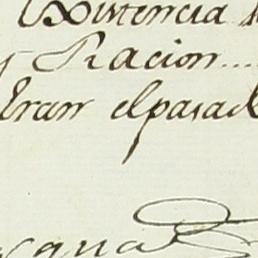 Existencia
y Racion....
Eran el pasad